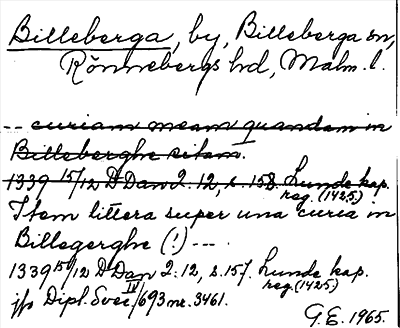 Billeberga, by, Billeberga sn,
Rönnebergs hd, Malm. l.
-- curiam meam quandam in
Billeberghe sitam.
1339 15/12 D Dan 2:12, s. 158. Lunde kap.
reg. (1425)
Item littera super una curia in
Billegerghe (!) ---
1339 15/12 D Dan 2:12, s. 157. Lunde kap.
reg. (1425)
jfr Dipl. Svec. IV/693 nr. 3461.
G.E. 1965.